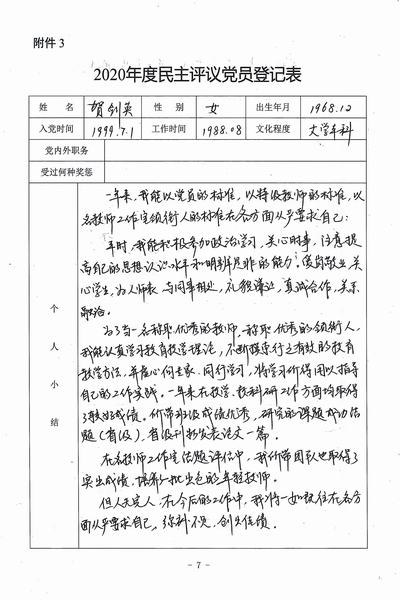 附件 3
2020年度民主评议党员登记表
姓 名 贺剑英 性 别 女 出生年月 1968.12
入党时间 1999.7.1 工作时间 1988.08 文化程度 大学本科
党内外职务
受过何种奖惩
个人小结
一年来，我能以党员的标准，以特级教师的标准，以
名教师工作室领衔人的标准在各方面从严要求自己：
平时，我能积极参加政治学习，关心时事，注意提
高自己的思想认识水平和明辨是非的能力。爱岗敬业，关
心学生，为人师表，与同事相处，礼貌谦让，真诚合作，关系
融洽。
为了当一名称职、优秀的教师，称职、优秀的领衔人，
我能认真学习教育教学理论，不断探索行之有效的教育
教学方法，并虚心向专家、同行学习，将学习所得用以指导
自己的工作实践。一年来在教学、教科研工作方面均取得
了较好成绩。所带班级成绩优秀，研究的课题成功结
题（省级），省级刊物发表论文一篇。
在名教师工作室结题评估中，我所带团队也取得了
突出成绩，培养了一批出色的年轻教师。
但人无完人，在今后的工作中，我将一如既往在各方
面从严要求自己，
创久佳绩。
- 7 -